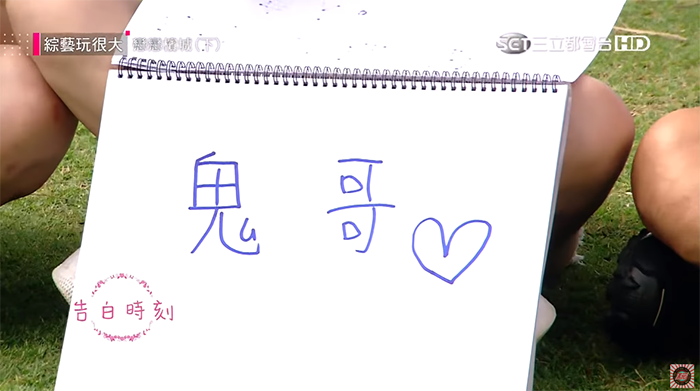 綜藝玩很大
戀戀檳城(下)
SET三立都會台HD
鬼哥
告白時刻